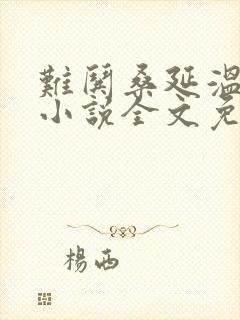 難鬨桑延溫
小說全文免
楊西